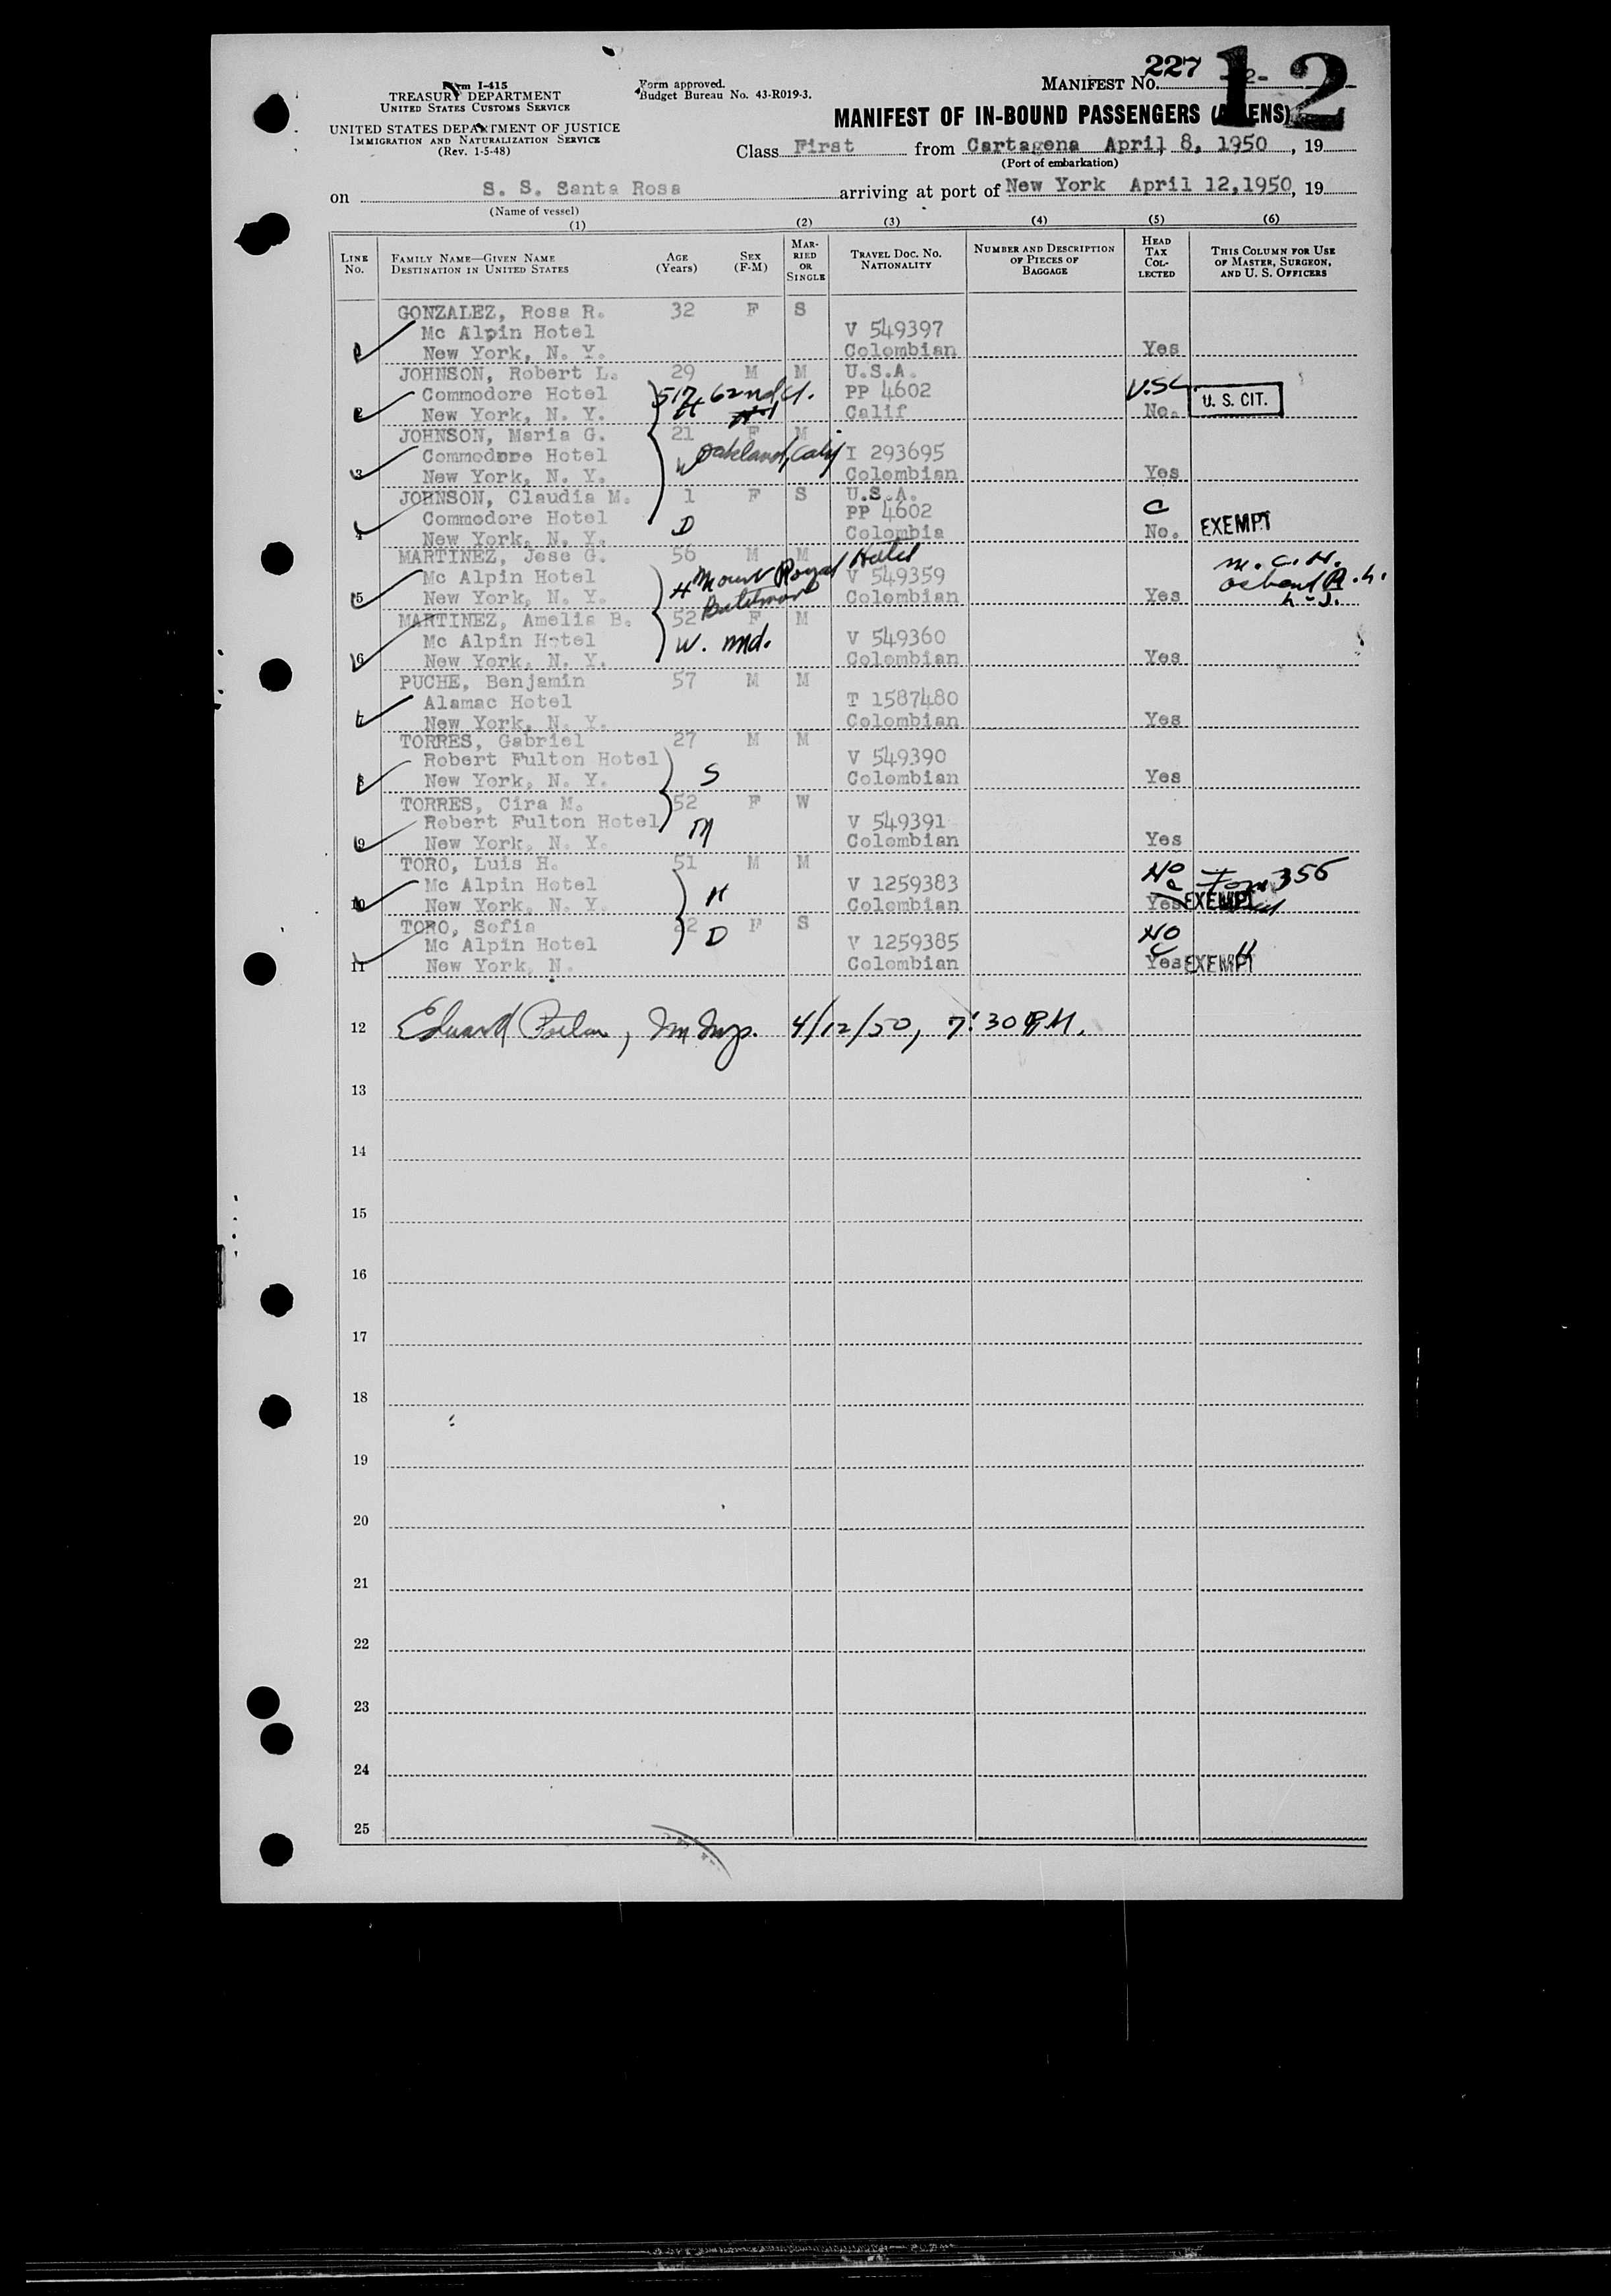 Form I-415
TREASURY DEPARTMENT
UNITED STATES CUSTOMS SERVICE
UNITED STATES DEPARTMENT OF JUSTICE
IMMIGRATION AND NATURALIZATION SERVICE
(Rev. 1-5-48)
Form approved.
Budget Bureau No. 43-R019-3.
MANIFEST NO. 227 -2- 12
MANIFEST OF IN-BOUND PASSENGERS (ALIENS)
Class First from Cartagena April 8, 1950, 19
(Port of embarkation)
on S. S. Santa Rosa arriving at port of New York April 12,1950, 19
(Name of vessel)
(1) (2) (3) (4) (5) (6)
LINE NO. FAMILY NAME—GIVEN NAME DESTINATION IN UNITED STATES AGE (Years) SEX (F-M) MARRIED OR SINGLE TRAVEL DOC. NO. NATIONALITY NUMBER AND DESCRIPTION OF PIECES OF BAGGAGE HEAD TAX COLLECTED THIS COLUMN FOR USE OF MASTER, SURGEON, AND U. S. OFFICERS
GONZALEZ, Rosa R. 32 F S
Mc Alpin Hotel V 549397
1 New York, N. Y. Colombian Yes
JOHNSON, Robert L. 29 M M U.S.A.
Commodore Hotel 517 62nd St. PP 4602 USC U. S. CIT.
2 New York, N. Y. H Calif No.
JOHNSON, Maria G. 21 F M
Commodore Hotel W Oakland, Calif I 293695
3 New York, N. Y. Colombian Yes
JOHNSON, Claudia M. 1 F S U.S.A.
Commodore Hotel D PP 4602 C
4 New York, N. Y. Colombia No. EXEMPT
MARTINEZ, Jose G. 56 M M
Mc Alpin Hotel H Mount Royal Hotel V 549359 M. C. H.
5 New York, N. Y. Baltimore Colombian Yes
MARTINEZ, Amelia B. 52 F M
Mc Alpin Hotel W. Md. V 549360
6 New York, N. Y. Colombian Yes
PUCHE, Benjamin 57 M M
Alamac Hotel T 1587480
7 New York, N. Y. Colombian Yes
TORRES, Gabriel 27 M M
Robert Fulton Hotel S V 549390
8 New York, N. Y. Colombian Yes
TORRES, Cira M. 52 F W
Robert Fulton Hotel M V 549391
9 New York, N. Y. Colombian Yes
TORO, Luis H. 51 M M No
Mc Alpin Hotel H V 1259383 C Form 356
10 New York, N. Y. Colombian Yes EXEMPT
TORO, Sofia 22 F S No
Mc Alpin Hotel D V 1259385 C "
11 New York, N. Colombian Yes EXEMPT
12 Edward , Im Insp. 4/12/50, 7:30 P.M.
13
14
15
16
17
18
19
20
21
22
23
24
25